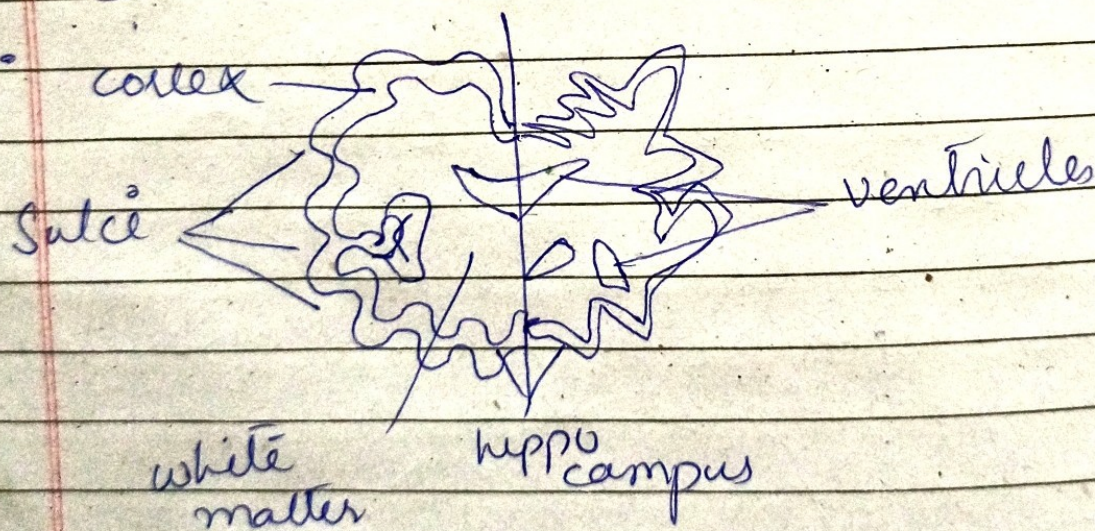 cortex
Sulci
ventricles
white
matter
hippo
campus